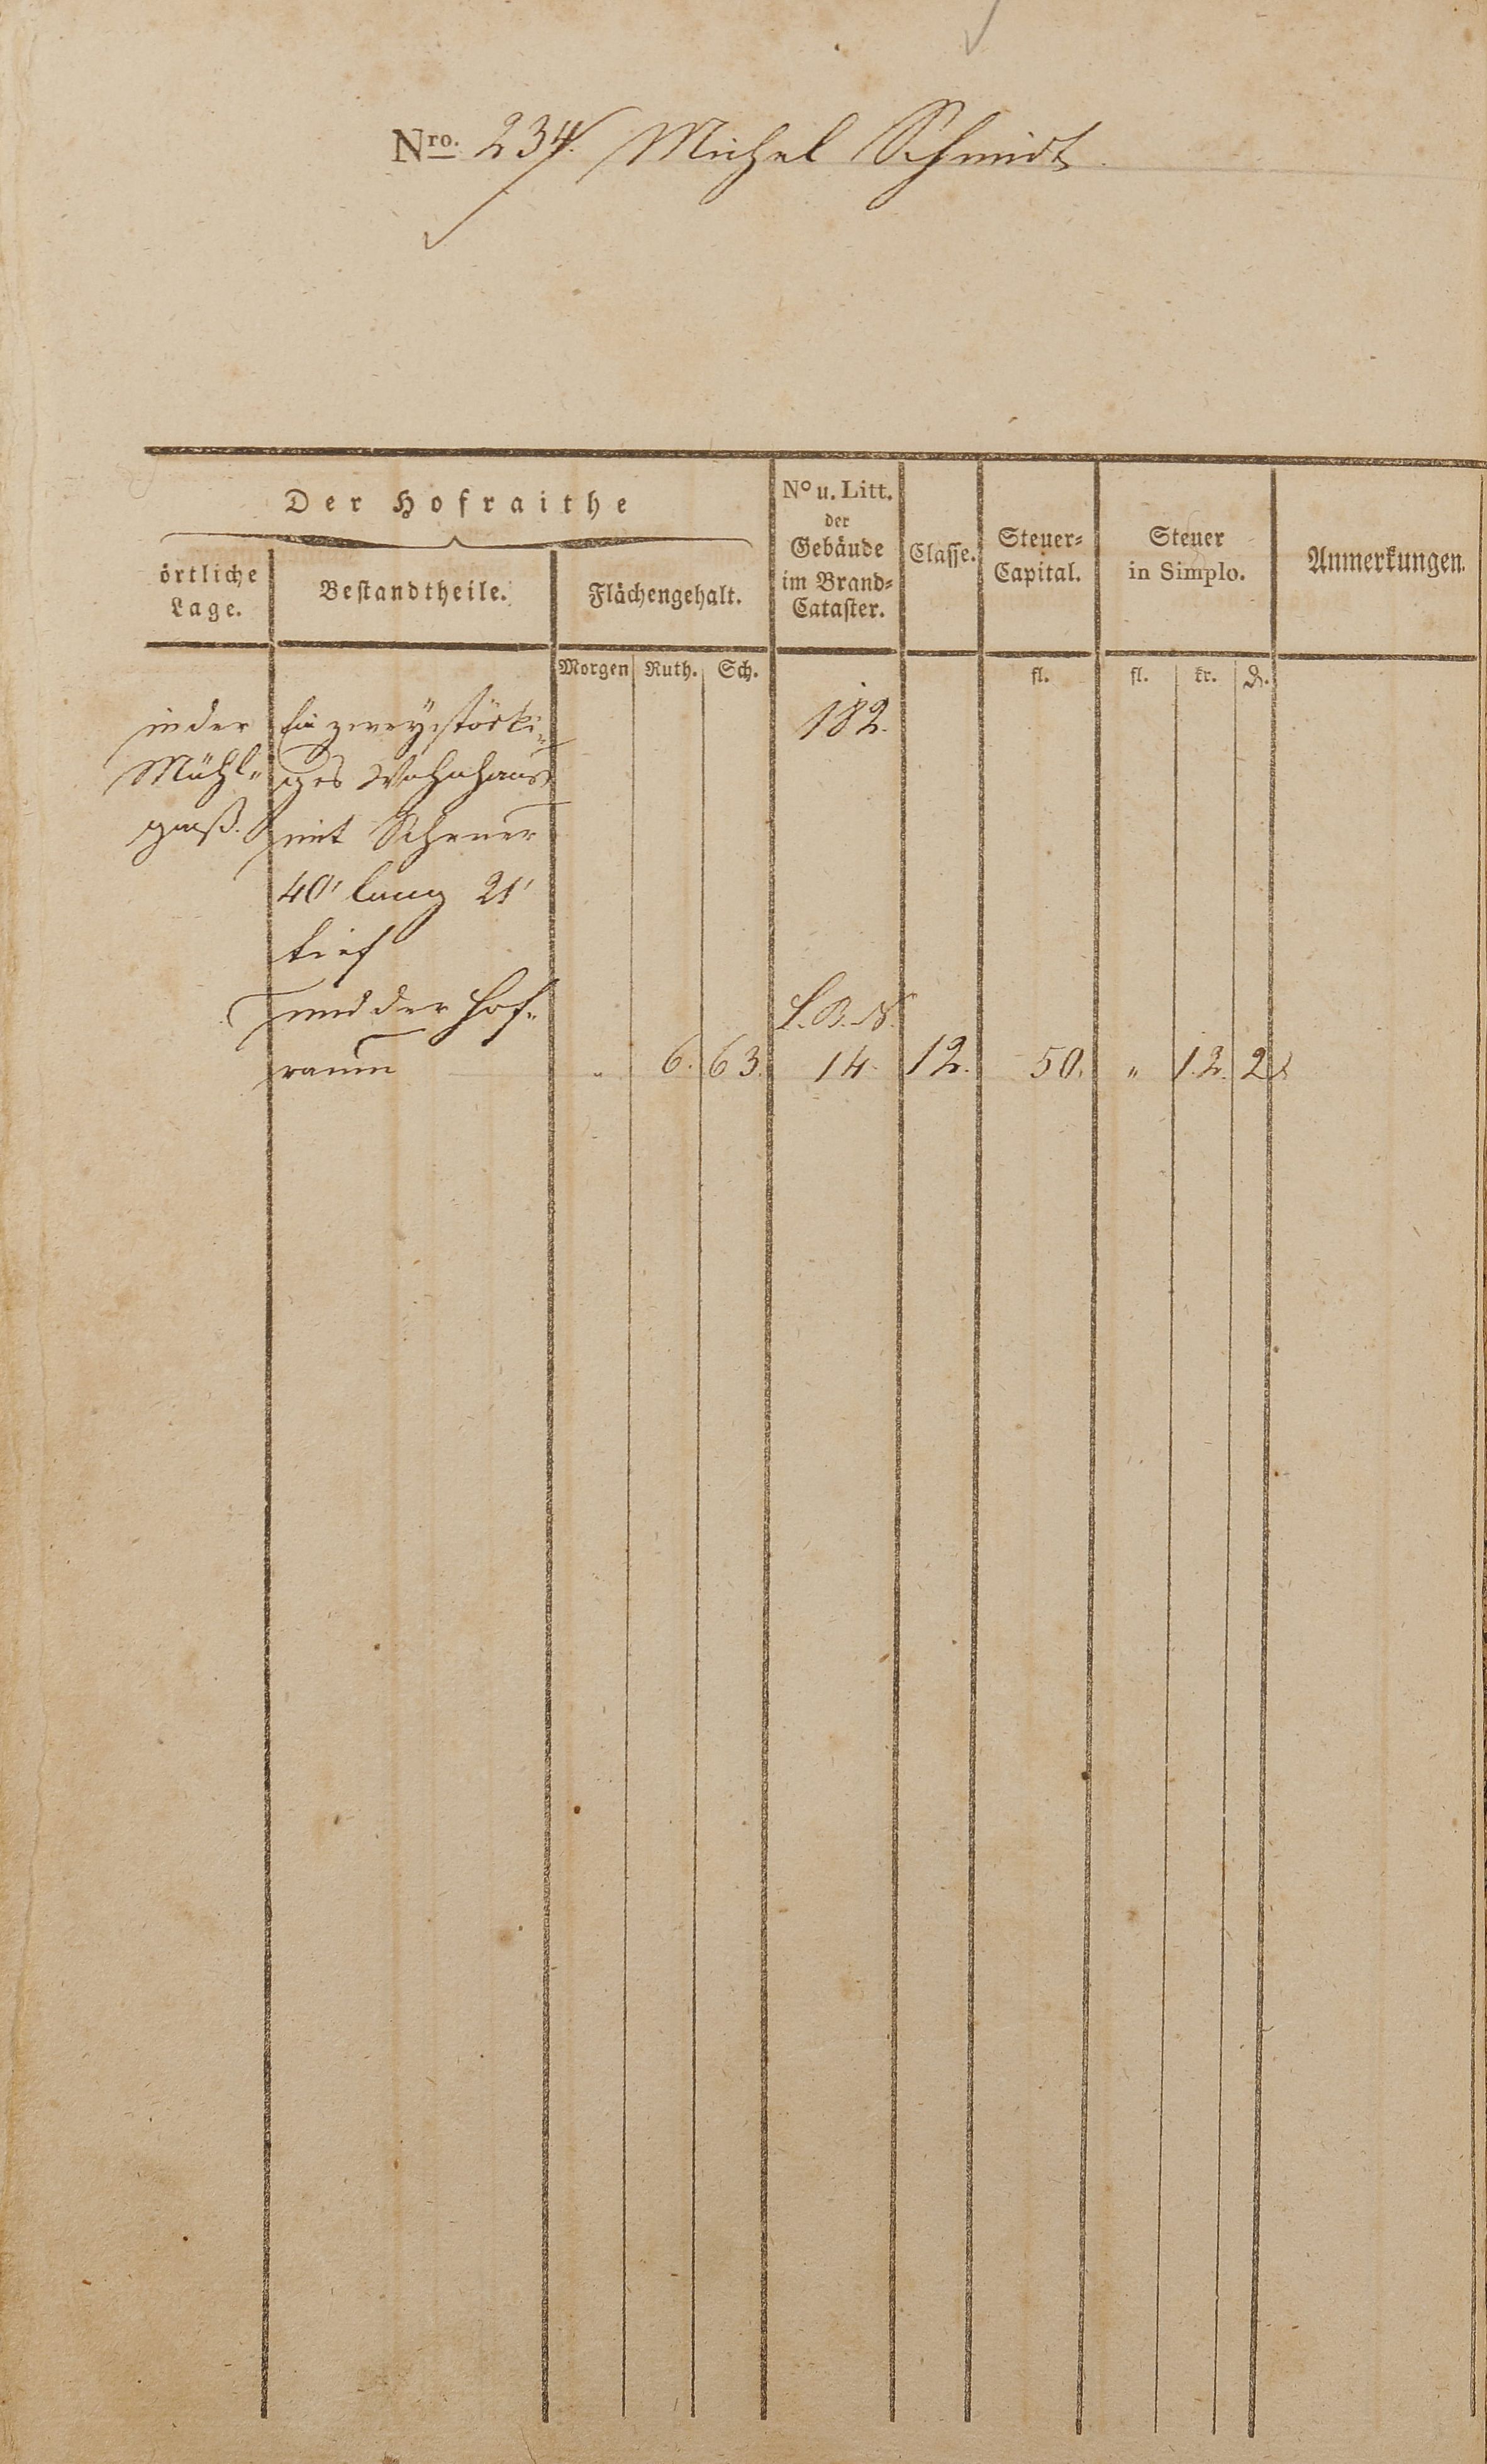 Nro. 234. Michel Schmidt.
Der Hofraithe
örtliche Lage.
Bestandtheile.
Flächengehalt.
No u. Litt. der Gebäude im Brand=Cataster.
Classe.
Steuer=Capital.
Steuer in Simplo.
Anmerkungen.
Morgen Ruth. Sch. fl. fl. kr. d.
in der Ein zweystöcki- 182.
Mühl- ges Wohnhaus
gaß. mit Scheuer
40' lang 21'
tief
und der Hof-
L.B.N.
raum " 6. 63. 14. 12. 50. " 12. 2